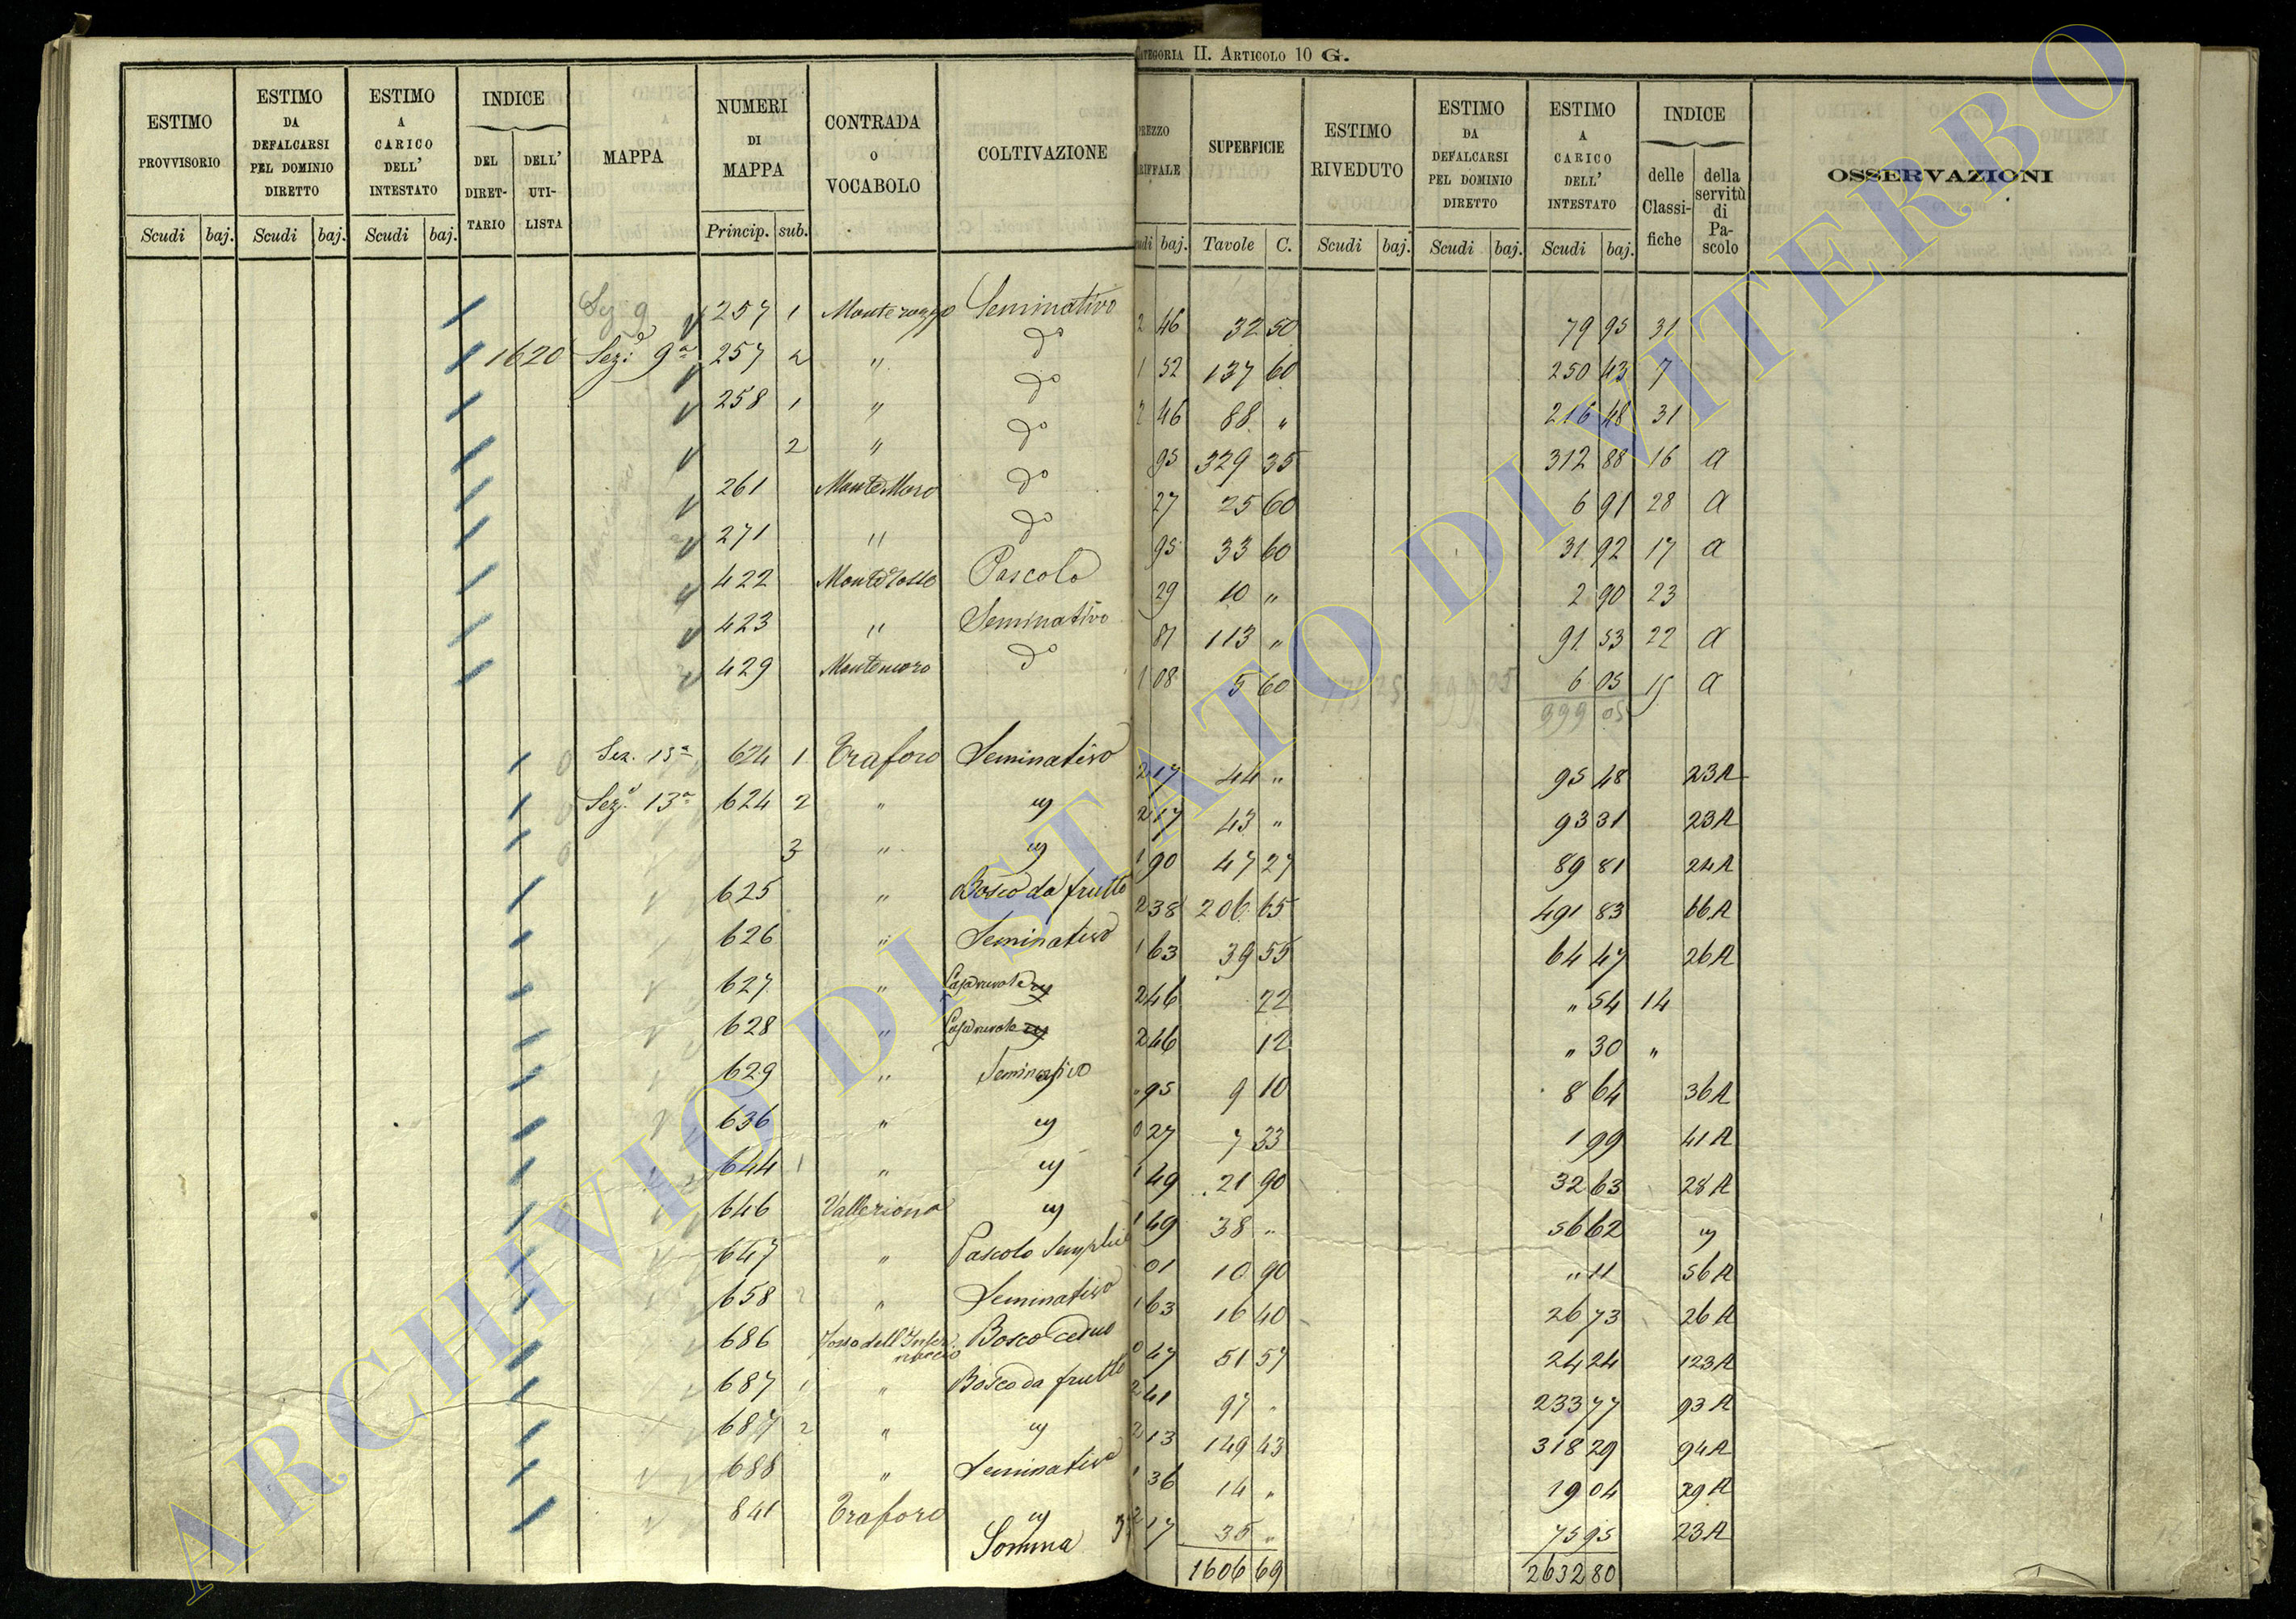 Categoria II. Articolo 10 G.
ESTIMO PROVVISORIO Scudi baj. ESTIMO DA DEFALCARSI PEL DOMINIO DIRETTO Scudi baj. ESTIMO A CARICO DELL' INTESTATO Scudi baj. INDICE DEL DIRETTARIO DELL' UTILISTA MAPPA NUMERI DI MAPPA Princip. sub. CONTRADA O VOCABOLO COLTIVAZIONE
PREZZO baj. SUPERFICIE Tavole C. ESTIMO RIVEDUTO Scudi baj. ESTIMO DA DEFALCARSI PEL DOMINIO DIRETTO Scudi baj. ESTIMO A CARICO DELL' INTESTATO Scudi baj. INDICE delle Classifiche della servitù di Pascolo OSSERVAZIONI
Sez 9 257 1 Monterozzo Seminativo 2 46 32 50 79 95 31
1620 Sez: 9a 257 2 " do 1 52 137 60 250 43 7
258 1 " do 2 46 88 " 216 48 31
2 " do 95 329 35 312 88 16 a
261 MonteMoro do 27 25 60 6 91 28 a
271 " do 95 33 60 31 92 17 a
422 Monterosso Pascolo 29 10 " 2 90 23
423 " Seminativo 81 113 " 91 53 22 a
429 Montemoro do 1 08 5 60 6 05 15 a
999 05
Sez. 13a 624 1 Traforo Seminativo 2 17 44 " 95 48 23A
Sez. 13a 624 2 " " 2 17 43 " 93 31 23A
3 " " 1 90 47 27 89 81 24A
625 " Bosco da frutto 2 38 206 65 491 83 66A
626 " Seminativo 1 63 39 55 64 47 26A
627 " Casa rurale 2 46 22 " 54 14
628 " Casa rurale 2 46 12 " 30 "
629 " Seminativo " 95 9 10 8 64 36A
636 " " 0 27 7 33 1 99 41A
644 1 " " 1 49 21 90 32 63 28A
646 Valleriona " 1 49 38 " 56 62 "
647 " Pascolo Semplice 01 10 90 " 11 56A
658 2 " Seminativo 1 63 16 40 26 73 26A
686 Fosso dell'Infernaccio Bosco ceduo 0 47 51 57 24 24 123A
687 1 " Bosco da frutto 2 41 97 " 233 77 93A
687 2 " " 2 13 149 43 318 29 94A
688 " Seminativo 1 36 14 " 19 04 29A
841 Traforo " 2 17 35 " 75 95 23A
Somma 1606 69 2632 80
ARCHIVIO DI STATO DI VITERBO